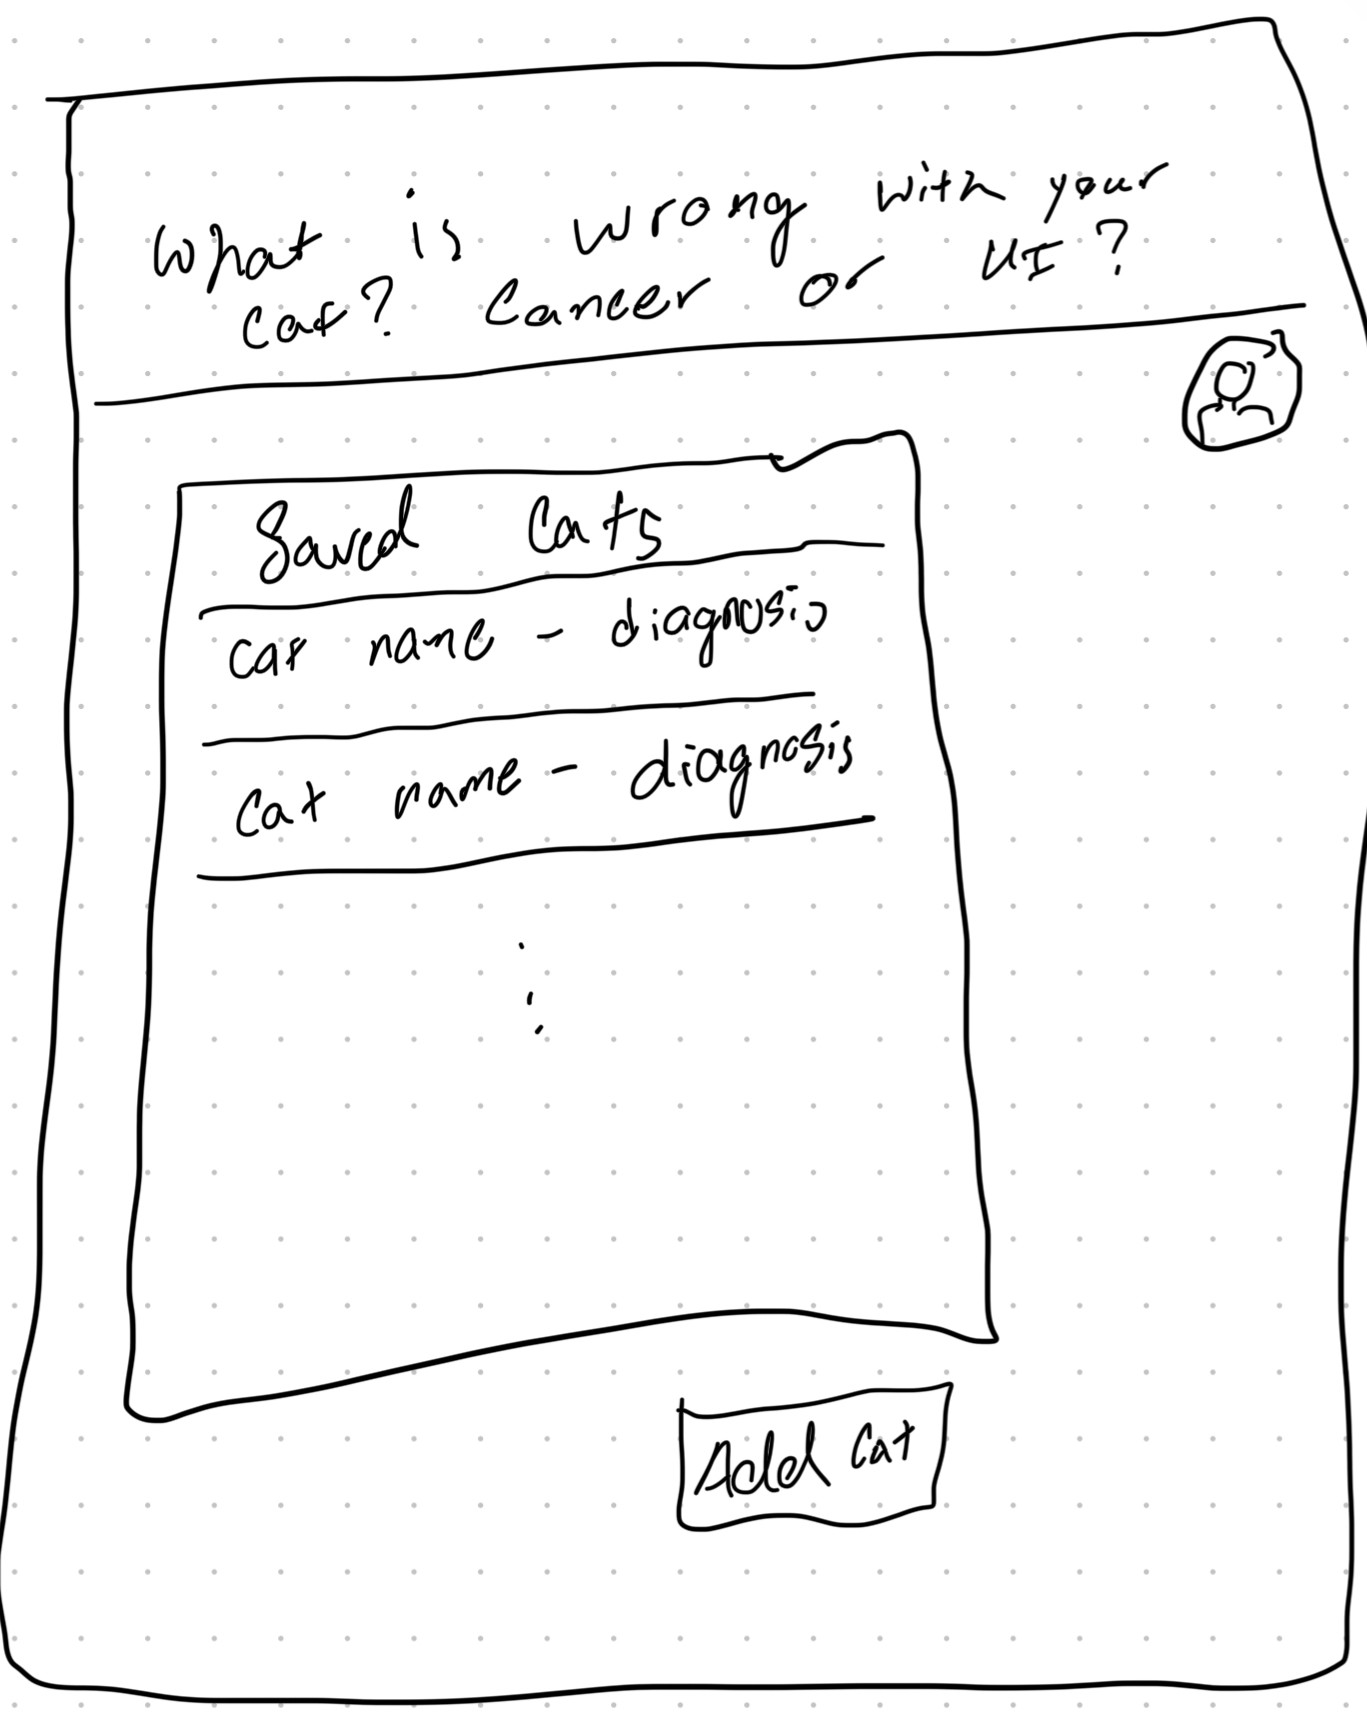 What is wrong with your
cat? Cancer or UI?
Saved Cats
cat name - diagnosis
Cat name - diagnosis
Add Cat